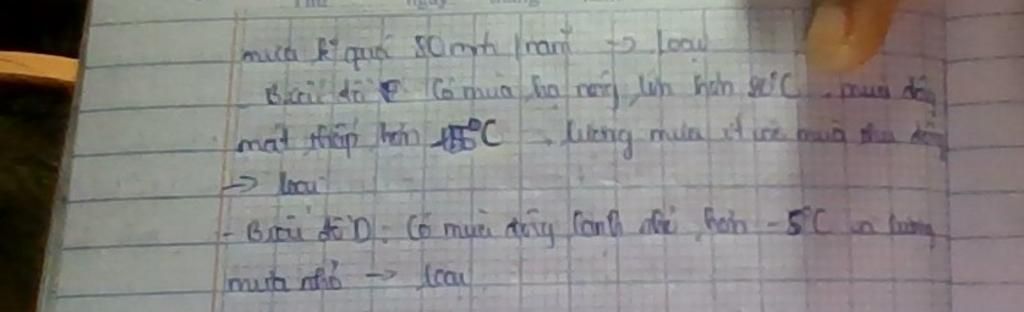 Thứ ngày tháng
mưa k quá 50mm / năm → loại
Biểu đồ E Có mùa hạ nóng, lớn hơn 20°C, mùa đông
mát thấp hơn 15°C, lượng mưa ít mùa đông
→ loại
- Biểu đồ D: Có mùa đông lạnh hơn -5°C lượng
mưa nhỏ → loại